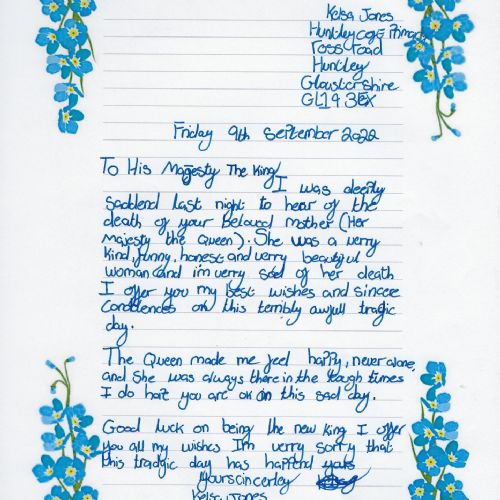 Kelsa Jones
Huntley cofe Primary
ross road
Huntley
Gloustershire
GL19 3EX
Friday 9th september 2022
To His Magesty The King
I was deerly
saddend last night to hear of the
death of your beloved mother (Her
Majesty the Queen). She was a verry
kind, funny, honest and verry beautiful
woman and im verry sad of her death
I offer you my best wishes and sincere
condolences on this terribly awfull tragic
day.
The Queen made me feel happy, never alone,
and she was always there in the tough times
I do hope you are ok on this sad day.
Good luck on being the new king I offer
you all my wishes Im verry sorry that
this tradgic day has happend
yoursincerley
Kelsa Jones